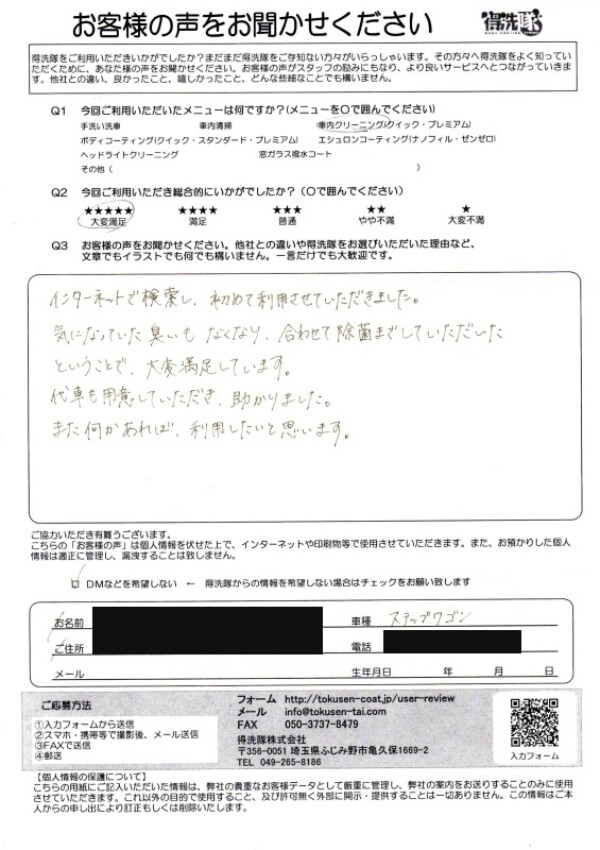 お客様の声をお聞かせください
得洗隊
得洗隊をご利用いただきいかがでしたか?まだまだ得洗隊をご存知ない方々がいらっしゃいます。その方々へ得洗隊をよく知っていただくために、あなた様の声をお聞かせください。お客様の声がスタッフの励みにもなり、より良いサービスへとつながっていきます。他社との違い、良かったこと、嬉しかったこと、どんな些細なことでも構いません。
Q1 今回ご利用いただいたメニューは何ですか?(メニューを〇で囲んでください)
手洗い洗車 車内清掃 車内クリーニング(クイック・プレミアム)
ボディコーティング(クイック・スタンダード・プレミアム) エシュロンコーティング(ナノフィル・ゼンゼロ)
ヘッドライトクリーニング 窓ガラス撥水コート
その他( )
Q2 今回ご利用いただき総合的にいかがでしたか?(〇で囲んでください)
★★★★★ ★★★★ ★★★ ★★ ★
大変満足 満足 普通 やや不満 大変不満
Q3 お客様の声をお聞かせください。他社との違いや得洗隊をお選びいただいた理由など、
文章でもイラストでも何でも構いません。一言だけでも大歓迎です。
インターネットで検索し、初めて利用させていただきました。
気になっていた臭いも なくなり、合わせて除菌までしていただいた
ということで、大変満足しています。
代車も用意していただき、助かりました。
また何かあれば、利用したいと思います。
ご協力いただき有難うございます。
こちらの「お客様の声」は個人情報を伏せた上で、インターネットや印刷物等で使用させていただきます。また、お預かりした個人
情報は適正に管理し、漏洩することは致しません。
DMなどを希望しない ← 得洗隊からの情報を希望しない場合はチェックをお願い致します
お名前 車種 ステップワゴン
ご住所 電話
メール 生年月日 年 月 日
ご応募方法
①入力フォームから送信
②スマホ・携帯等で撮影後、メール送信
③FAXで送信
④郵送
フォーム http://tokusen-coat.jp/user-review
メール info@tokusen-tai.com
FAX 050-3737-8479
得洗隊株式会社
〒356-0051 埼玉県ふじみ野市亀久保1669-2
TEL 049-265-8186
入力フォーム
【個人情報の保護について】
こちらの用紙にご記入いただいた情報は、弊社の貴重なお客様データとして厳重に管理し、弊社の案内をお送りすることのみに使用
させていただきます。これ以外の目的で使用すること、及び許可無く外部に開示・提供することは一切ありません。この情報はご本
人からの申し出により訂正もしくは削除いたします。